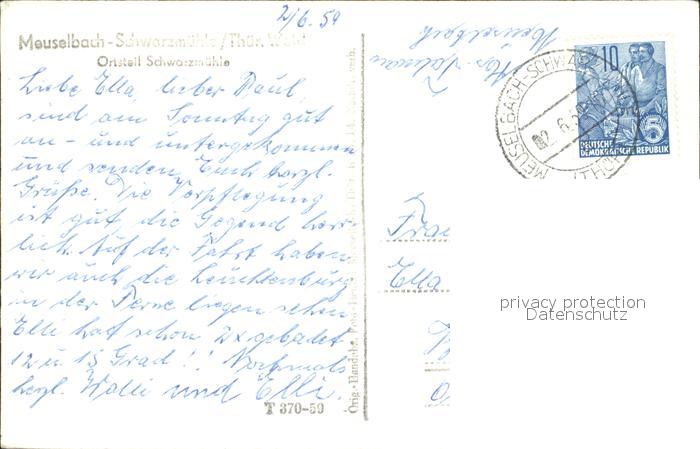 2/6.59
Meuselbach-Schwarzmühle/Thür. Wald
Ortsteil Schwarzmühle
Liebe Ella, lieber Paul,
sind am Sonntag gut
an- und untergekommen
und senden Euch herzl.
Grüße. Die Verpflegung
ist gut, die Gegend herr-
lich. Auf der Fahrt haben
wir auch die Leuchtenburg
in der Ferne liegen sehen
Elli hat schon 2x gebadet
12 u. 15 Grad!! Nochmals
hzgl. Walli und Elli.
T 370-59
Meuselbach
10
DEUTSCHE
DEMOKRATISCHE REPUBLIK
MEUSELBACH-SCHWARZ
(THÜR
Frau
Ella
privacy protection
Datenschutz